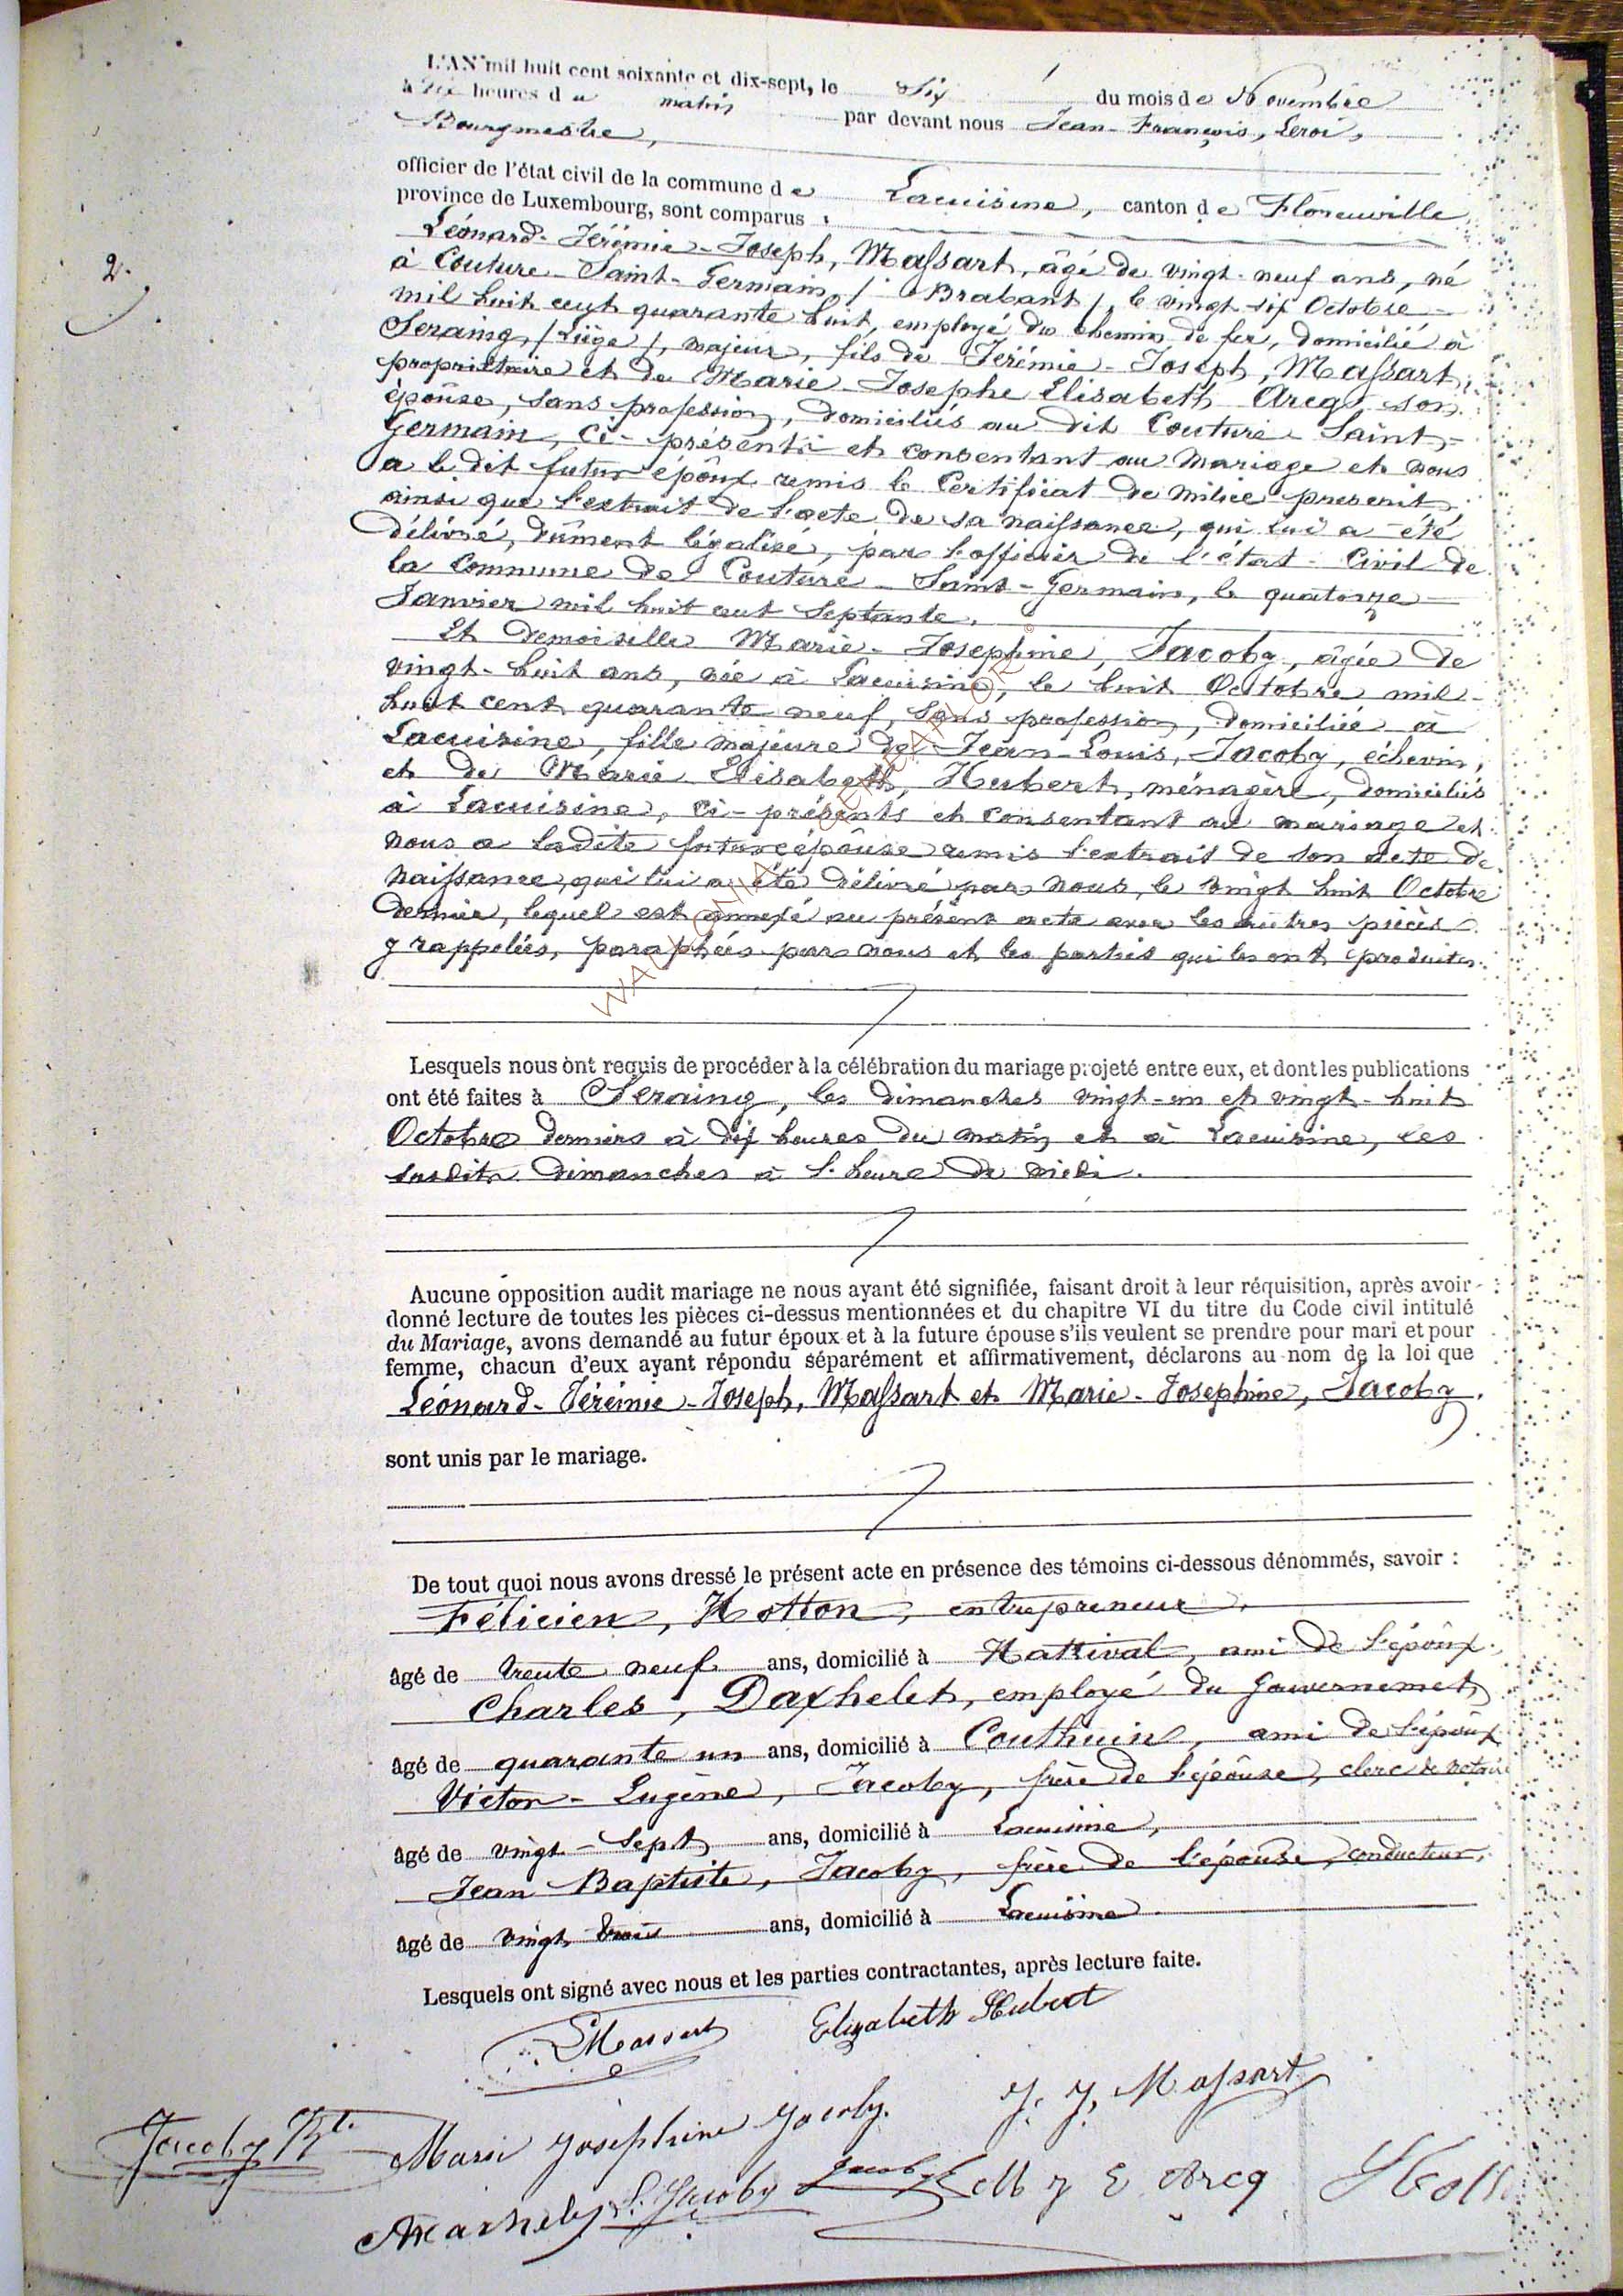 L'AN mil huit cent soixante et dix-sept, le Six du mois de Novembre
à dix heures du matin par devant nous Jean-François, Leroi,
Bourgmestre,
officier de l'état civil de la commune de Lacuisine, canton de Florenville
province de Luxembourg, sont comparus :
Léonard-Jérémie-Joseph, Massart, âgé de vingt-neuf ans, né
à Couture-Saint-Germain, / Brabant /, le vingt-six Octobre
mil huit cent quarante huit, employé du chemin de fer, domicilié à
Seraing, / Liège /, majeur, fils de Jérémie-Joseph, Massart,
propriétaire et de Marie-Josephe Elisabeth Arcq, son
épouse, sans profession, domiciliés au dit Couture-Saint-
Germain, ci-présents et consentant au mariage et nous
a le dit futur époux remis le Certificat de milice prescrit,
ainsi que l'extrait de l'acte de sa naissance, qui lui a été
délivré, dûment légalisé, par l'officier de l'état-Civil de
la Commune de Couture-Saint-Germain, le quatorze
Janvier mil huit cent Septante.
Et demoiselle Marie-Josephine, Jacoby, âgée de
vingt-huit ans, née à Lacuisine, le huit Octobre mil
huit cent quarante neuf, Sans profession, domiciliée à
Lacuisine, fille majeure de Jean-Louis, Jacoby, échevin,
et de Marie Elisabeth, Hubert, ménagère, domiciliés
à Lacuisine, ci-présents et Consentant au mariage et
nous a ladite future épouse remis l'extrait de son acte de
Naissance, qui lui a été délivré par nous, le vingt huit Octobre
dernier, lequel est annexé au présent acte avec les autres pièces
y rappelées, paraphées par nous et les parties qui les ont produites.
Lesquels nous ont requis de procéder à la célébration du mariage projeté entre eux, et dont les publications
ont été faites à Seraing, les dimanches vingt-un et vingt-huit
Octobre derniers à dix heures du matin et à Lacuisine, les
susdits dimanches à l'heure de midi.
Aucune opposition audit mariage ne nous ayant été signifiée, faisant droit à leur réquisition, après avoir
donné lecture de toutes les pièces ci-dessus mentionnées et du chapitre VI du titre du Code civil intitulé
du Mariage, avons demandé au futur époux et à la future épouse s'ils veulent se prendre pour mari et pour
femme, chacun d'eux ayant répondu séparément et affirmativement, déclarons au nom de la loi que
Léonard-Jérémie-Joseph, Massart et Marie-Josephine, Jacoby,
sont unis par le mariage.
De tout quoi nous avons dressé le présent acte en présence des témoins ci-dessous dénommés, savoir :
Félicien, Hotton, entrepreneur,
âgé de trente neuf ans, domicilié à Hatrival, ami de l'époux.
Charles, Daxhelet, employé du Gouvernement
âgé de quarante un ans, domicilié à Couthuin, ami de l'époux
Victor-Eugène, Jacoby, frère de l'épouse, clerc de notaire
âgé de vingt-sept ans, domicilié à Lacuisine,
Jean Baptiste, Jacoby, frère de l'épouse, conducteur,
âgé de vingt trois ans, domicilié à Lacuisine
Lesquels ont signé avec nous et les parties contractantes, après lecture faite.
LMassart Elizabeth Hubert
Jacoby Bte Marie Joséphine Jacoby. J. J. Massart
L. Jacoby Jacoby M J E Arcq
2.
WALLONIA GENEALOR ©